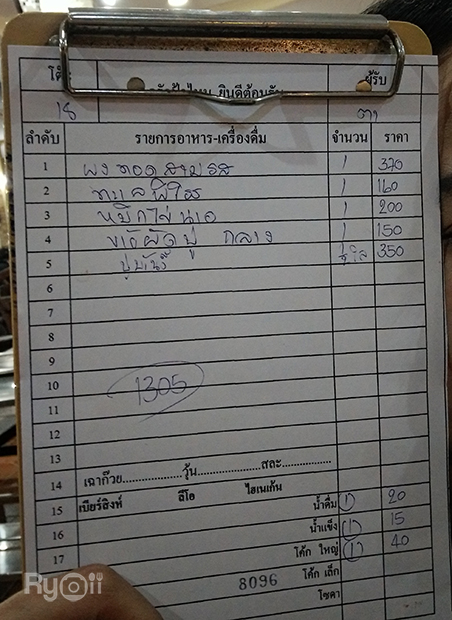 ผู้รับ
18
ลำดับ รายการอาหาร-เครื่องดื่ม จำนวน ราคา
1 ทอดสามรส 1 370
2 1 160
3 หมึกไข่ 1 200
4 ข้าวผัดปู กลาง 1 150
5 350
6
7
8
9
10 1305
11
12
13
14 เฉาก๊วย....................วุ้น....................สละ...............
15 เบียร์สิงห์ ลีโอ ไฮเนเก้น น้ำดื่ม 1 20
16 น้ำแข็ง 1 15
17 โค้ก ใหญ่ 1 40
8096 โค้ก เล็ก
โซดา
Ryoii